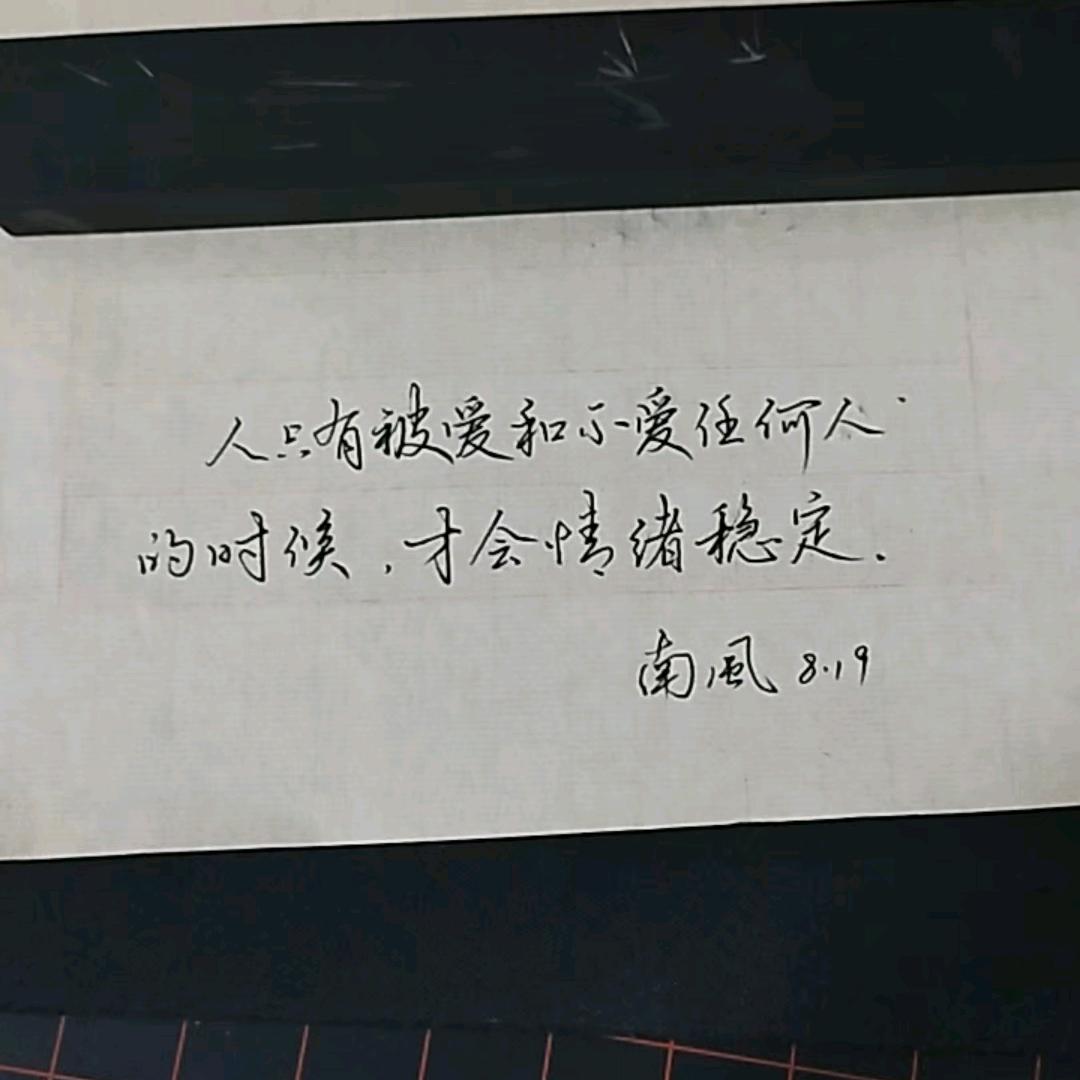 人只有被爱和不爱任何人
的时候，才会情绪稳定.
南風 8.19